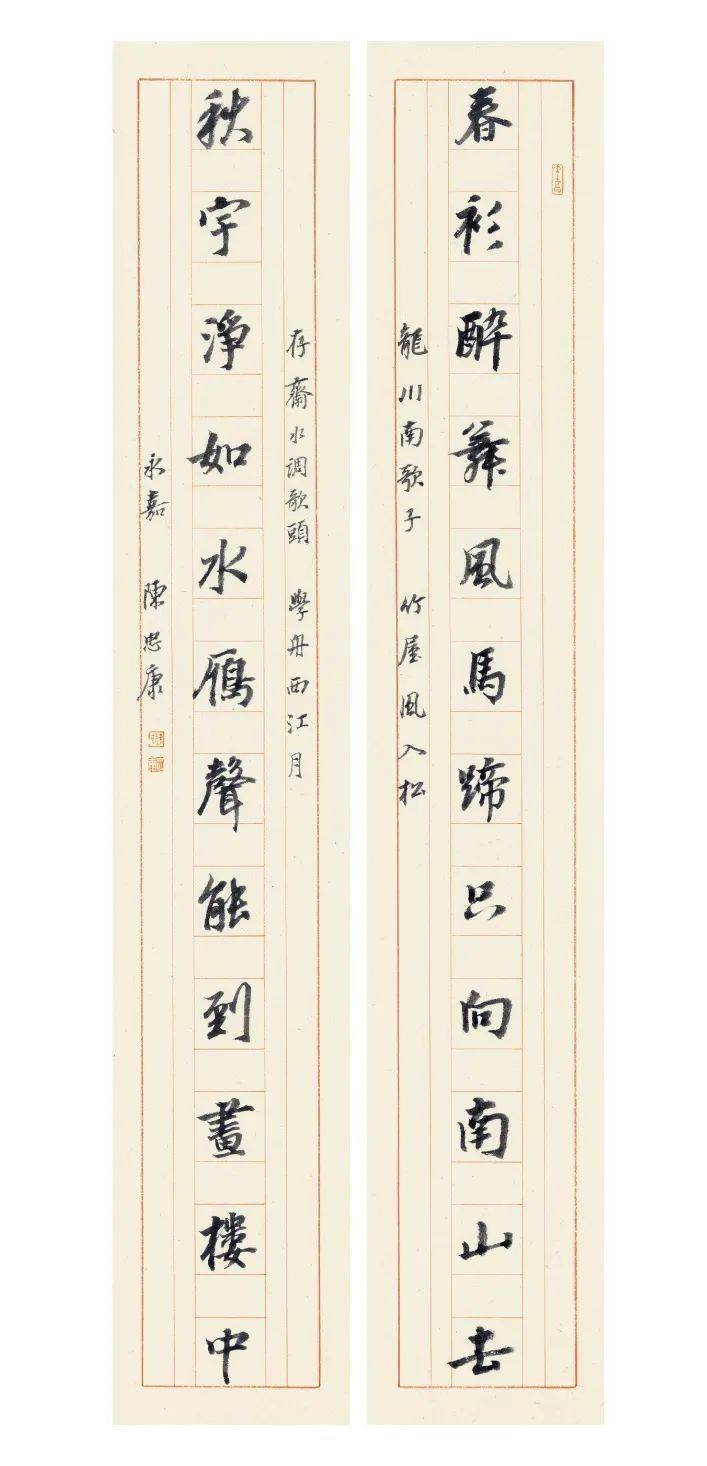 春衫醉舞風馬蹄只向南山去
龍川南歌子 竹屋風入松
秋宇淨如水雁聲能到畫樓中
存齋水调歌頭 學舟西江月
永嘉 陳忠康